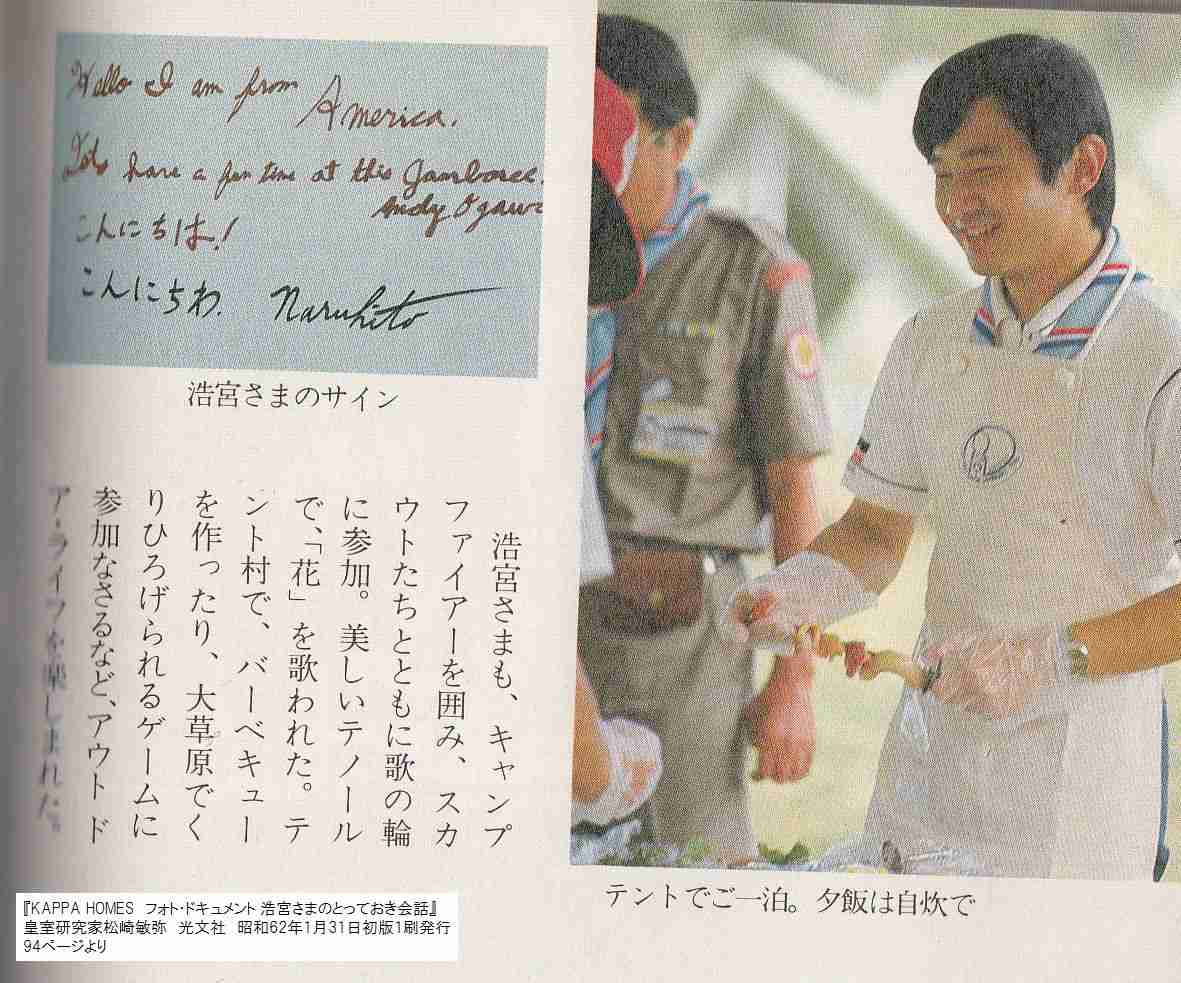 Hello I am from America.
Let's have a fun time at this Jamboree.
Andy Ogawa
こんにちは!
こんにちわ. Naruhito
浩宮さまのサイン
浩宮さまも、キャンプ
ファイアーを囲み、スカ
ウトたちとともに歌の輪
に参加。美しいテノール
で、「花」を歌われた。テ
ント村で、バーベキュー
を作ったり、大草原でく
りひろげられるゲームに
参加なさるなど、アウトド
ア・ライフを楽しまれた。
テントでご一泊。夕飯は自炊で
『KAPPA HOMES フォト・ドキュメント 浩宮さまのとっておき会話』
皇室研究家松崎敏弥 光文社 昭和62年1月31日初版1刷発行
94ページより